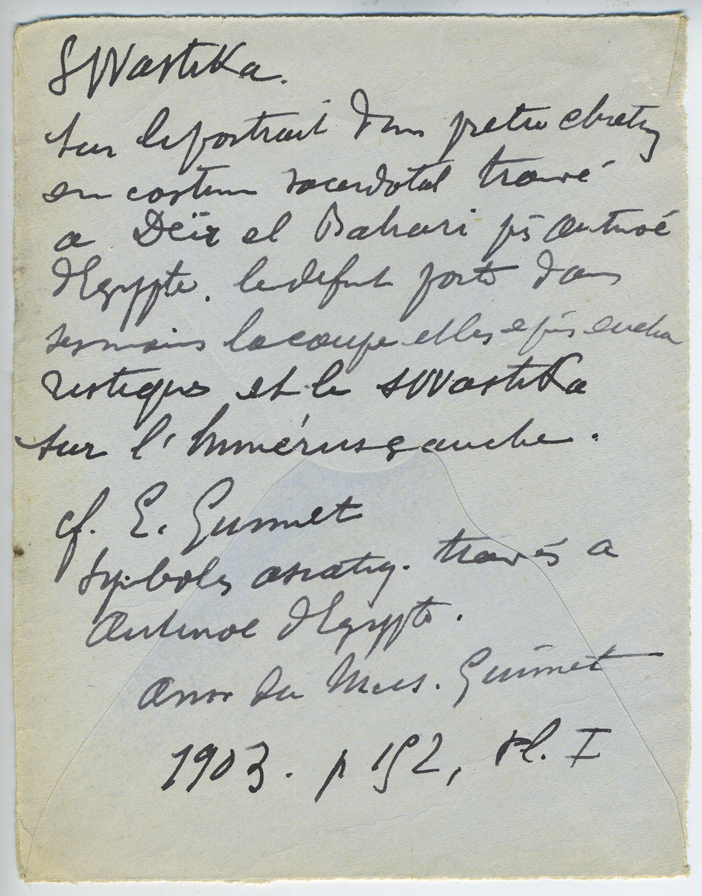 Swastika.
Sur le portrait d'un pretre chretien
en costume sacerdotal trouvé
a Deïr el Bahari prs Antinoé
d'Egypte. le defunt porte dans
ses mains la coupe et les epis eucha
ristiques et le swastika
sur l'humérus gauche.
cf. E. Guimet
Symboles asiatiq. trouvés a
Antinoe d'Egypte.
Ann du Mus. Guimet
1903. p 152, Pl. I